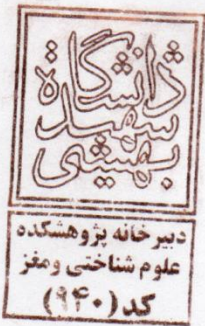 دانشگاه
شهید
بهشتی
دبیرخانه پژوهشکده
علوم شناختی ومغز
کد (۹۴۰)